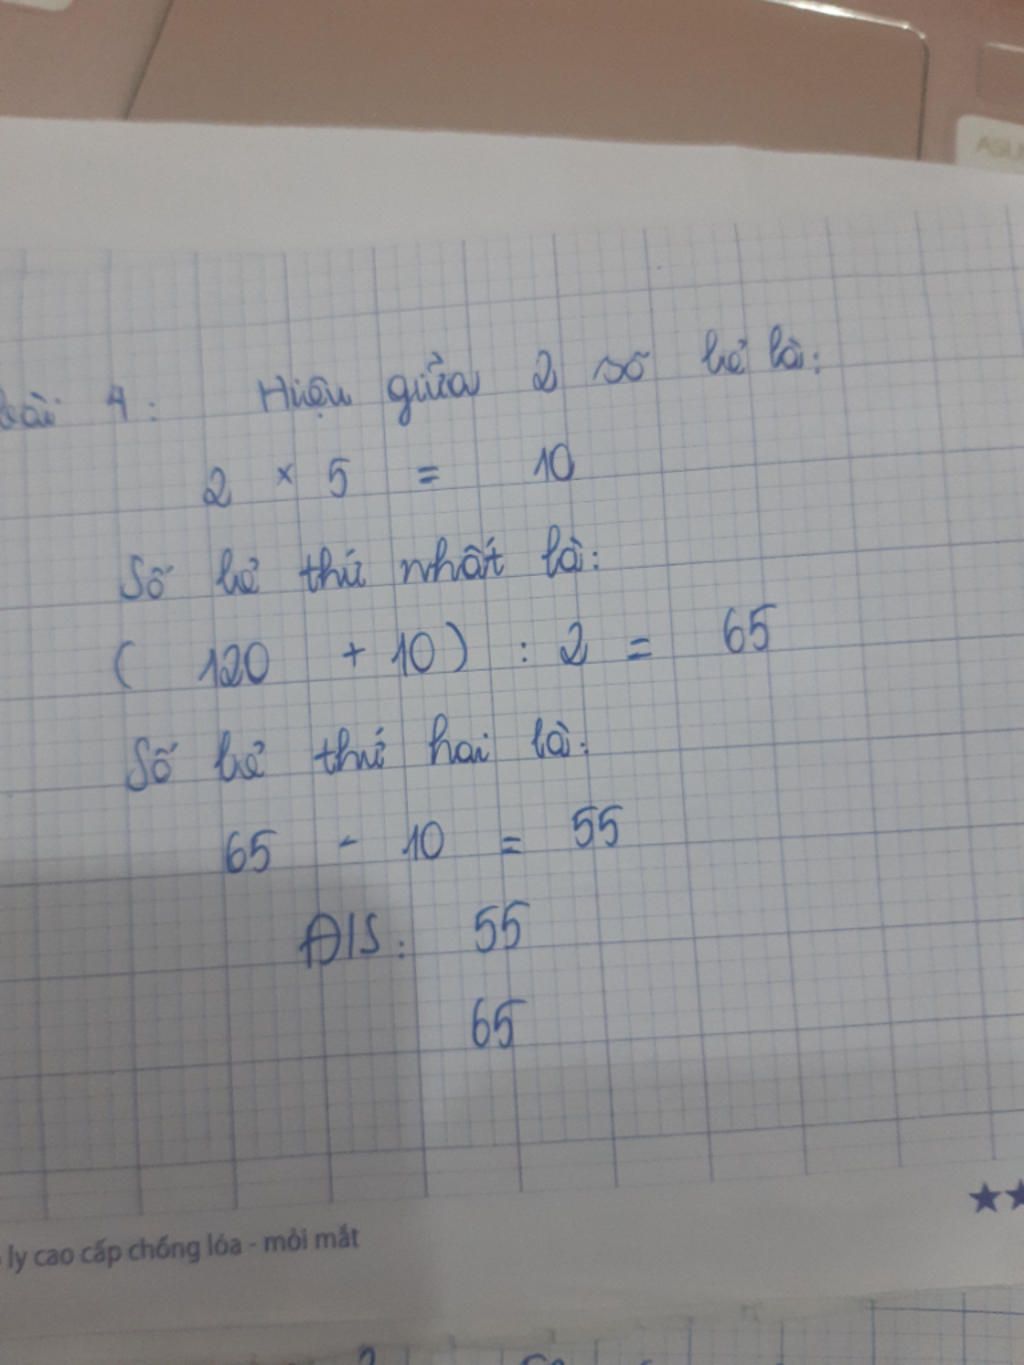 ASU
bài 4: Hiệu giữa 2 số lẻ là:
2 × 5 = 10
Số lẻ thứ nhất là:
( 120 + 10) : 2 = 65
Số lẻ thứ hai là:
65 - 10 = 55
Đ/S: 55
65
ly cao cấp chống lóa - mỏi mắt